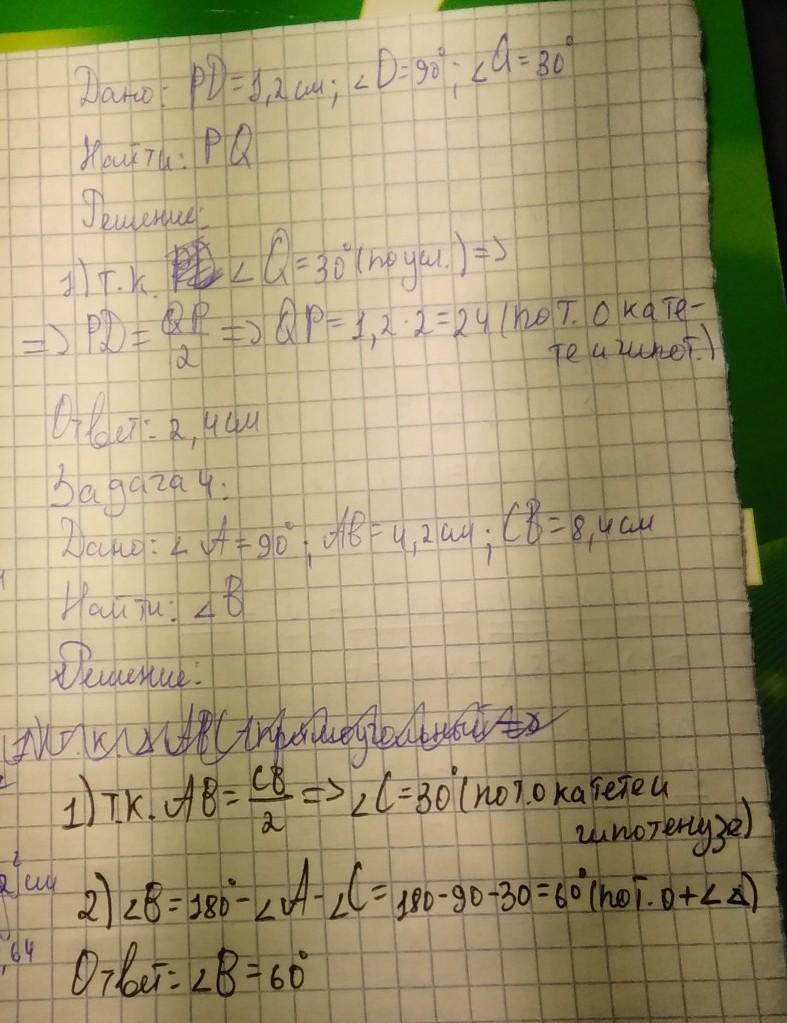 Дано: PD=1,2см; ∠D=90°; ∠Q=30°
Найти: PQ
Решение:
1) т.к. ∠Q=30° (по усл.) =>
=> PD= QP/2 => QP=1,2·2=24 (по т. о кате-
те и гипот.)
Ответ: 2,4см
Задача 4:
Дано: ∠A=90°; AB=4,2см; CB=8,4см
Найти: ∠B
Решение:
1) т.к. AB= CB/2 => ∠C=30° (по т. о катете и
гипотенузе)
2) ∠B=180°-∠A-∠C=180-90-30=60° (по т. о +∠∆)
Ответ: ∠B=60°
см
,64